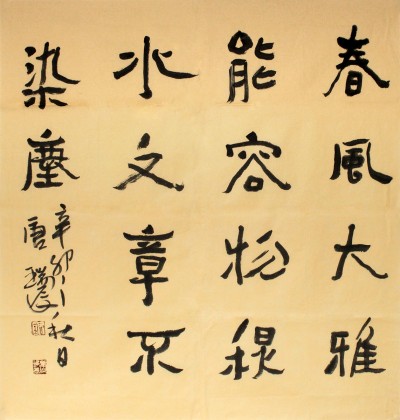 春風大雅
能容物秋
水文章不
染塵
辛卯秋日
唐